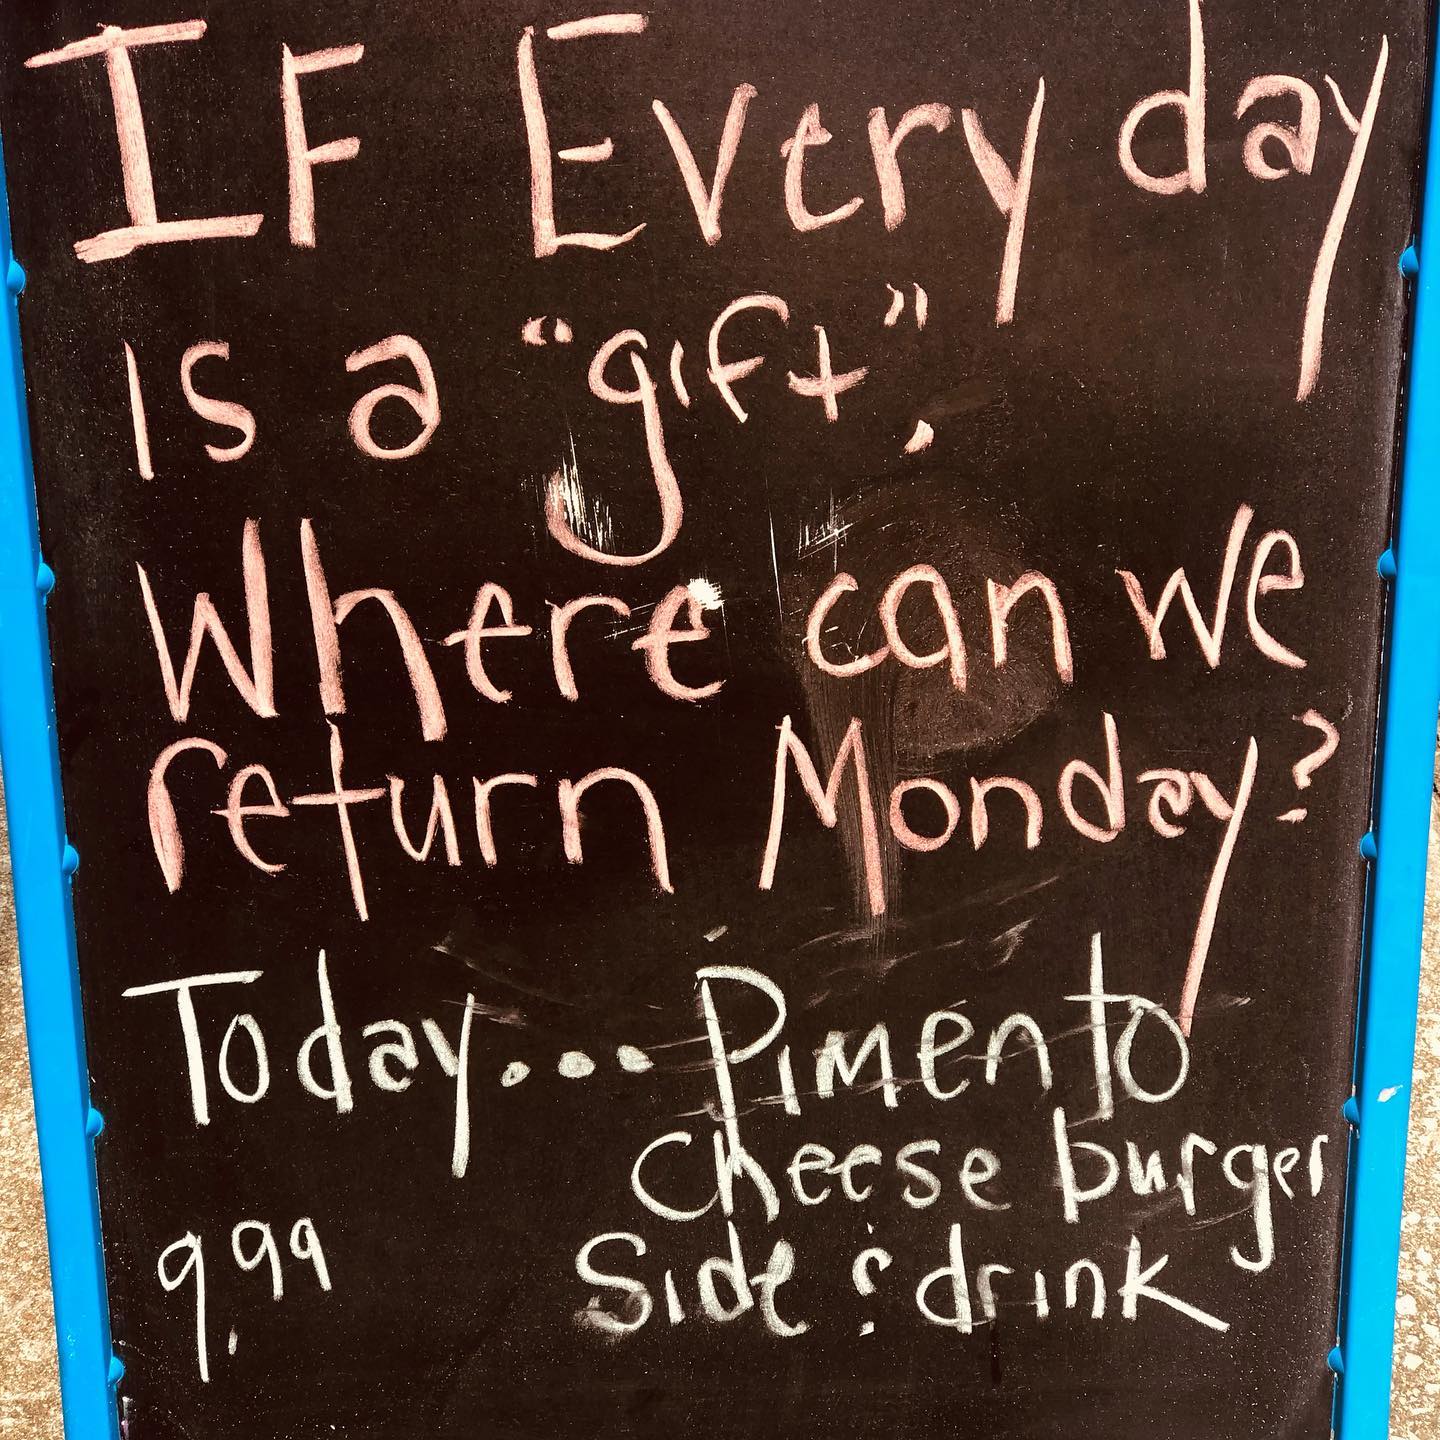 IF Every day
is a "gift".
Where can we
return Monday?
Today... Pimento
cheese burger
9.99 Side & drink